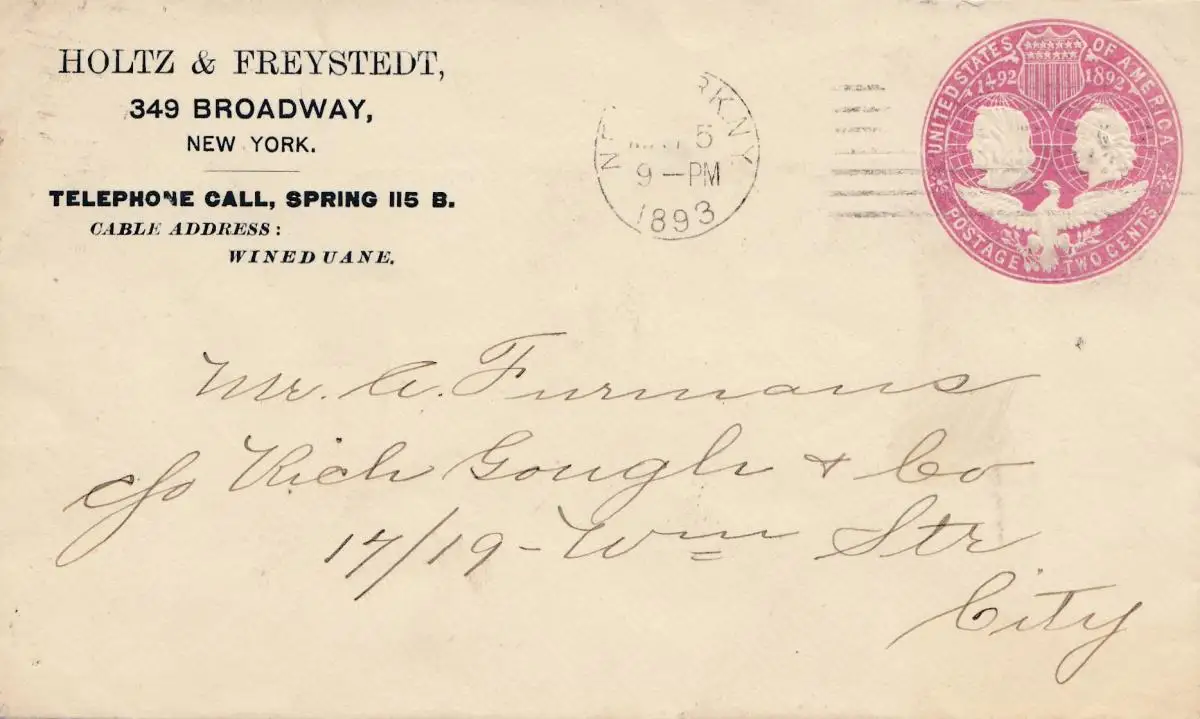 HOLTZ & FREYSTEDT,
349 BROADWAY,
NEW YORK.
TELEPHONE CALL, SPRING 115 B.
CABLE ADDRESS:
WINEDUANE.
RK NY
5
9-PM
1893
UNITED STATES OF AMERICA
1492 1892
POSTAGE TWO CENTS
Mr. A. Furmans
c/o Rich Gough & Co
17/19-Wm Str
City